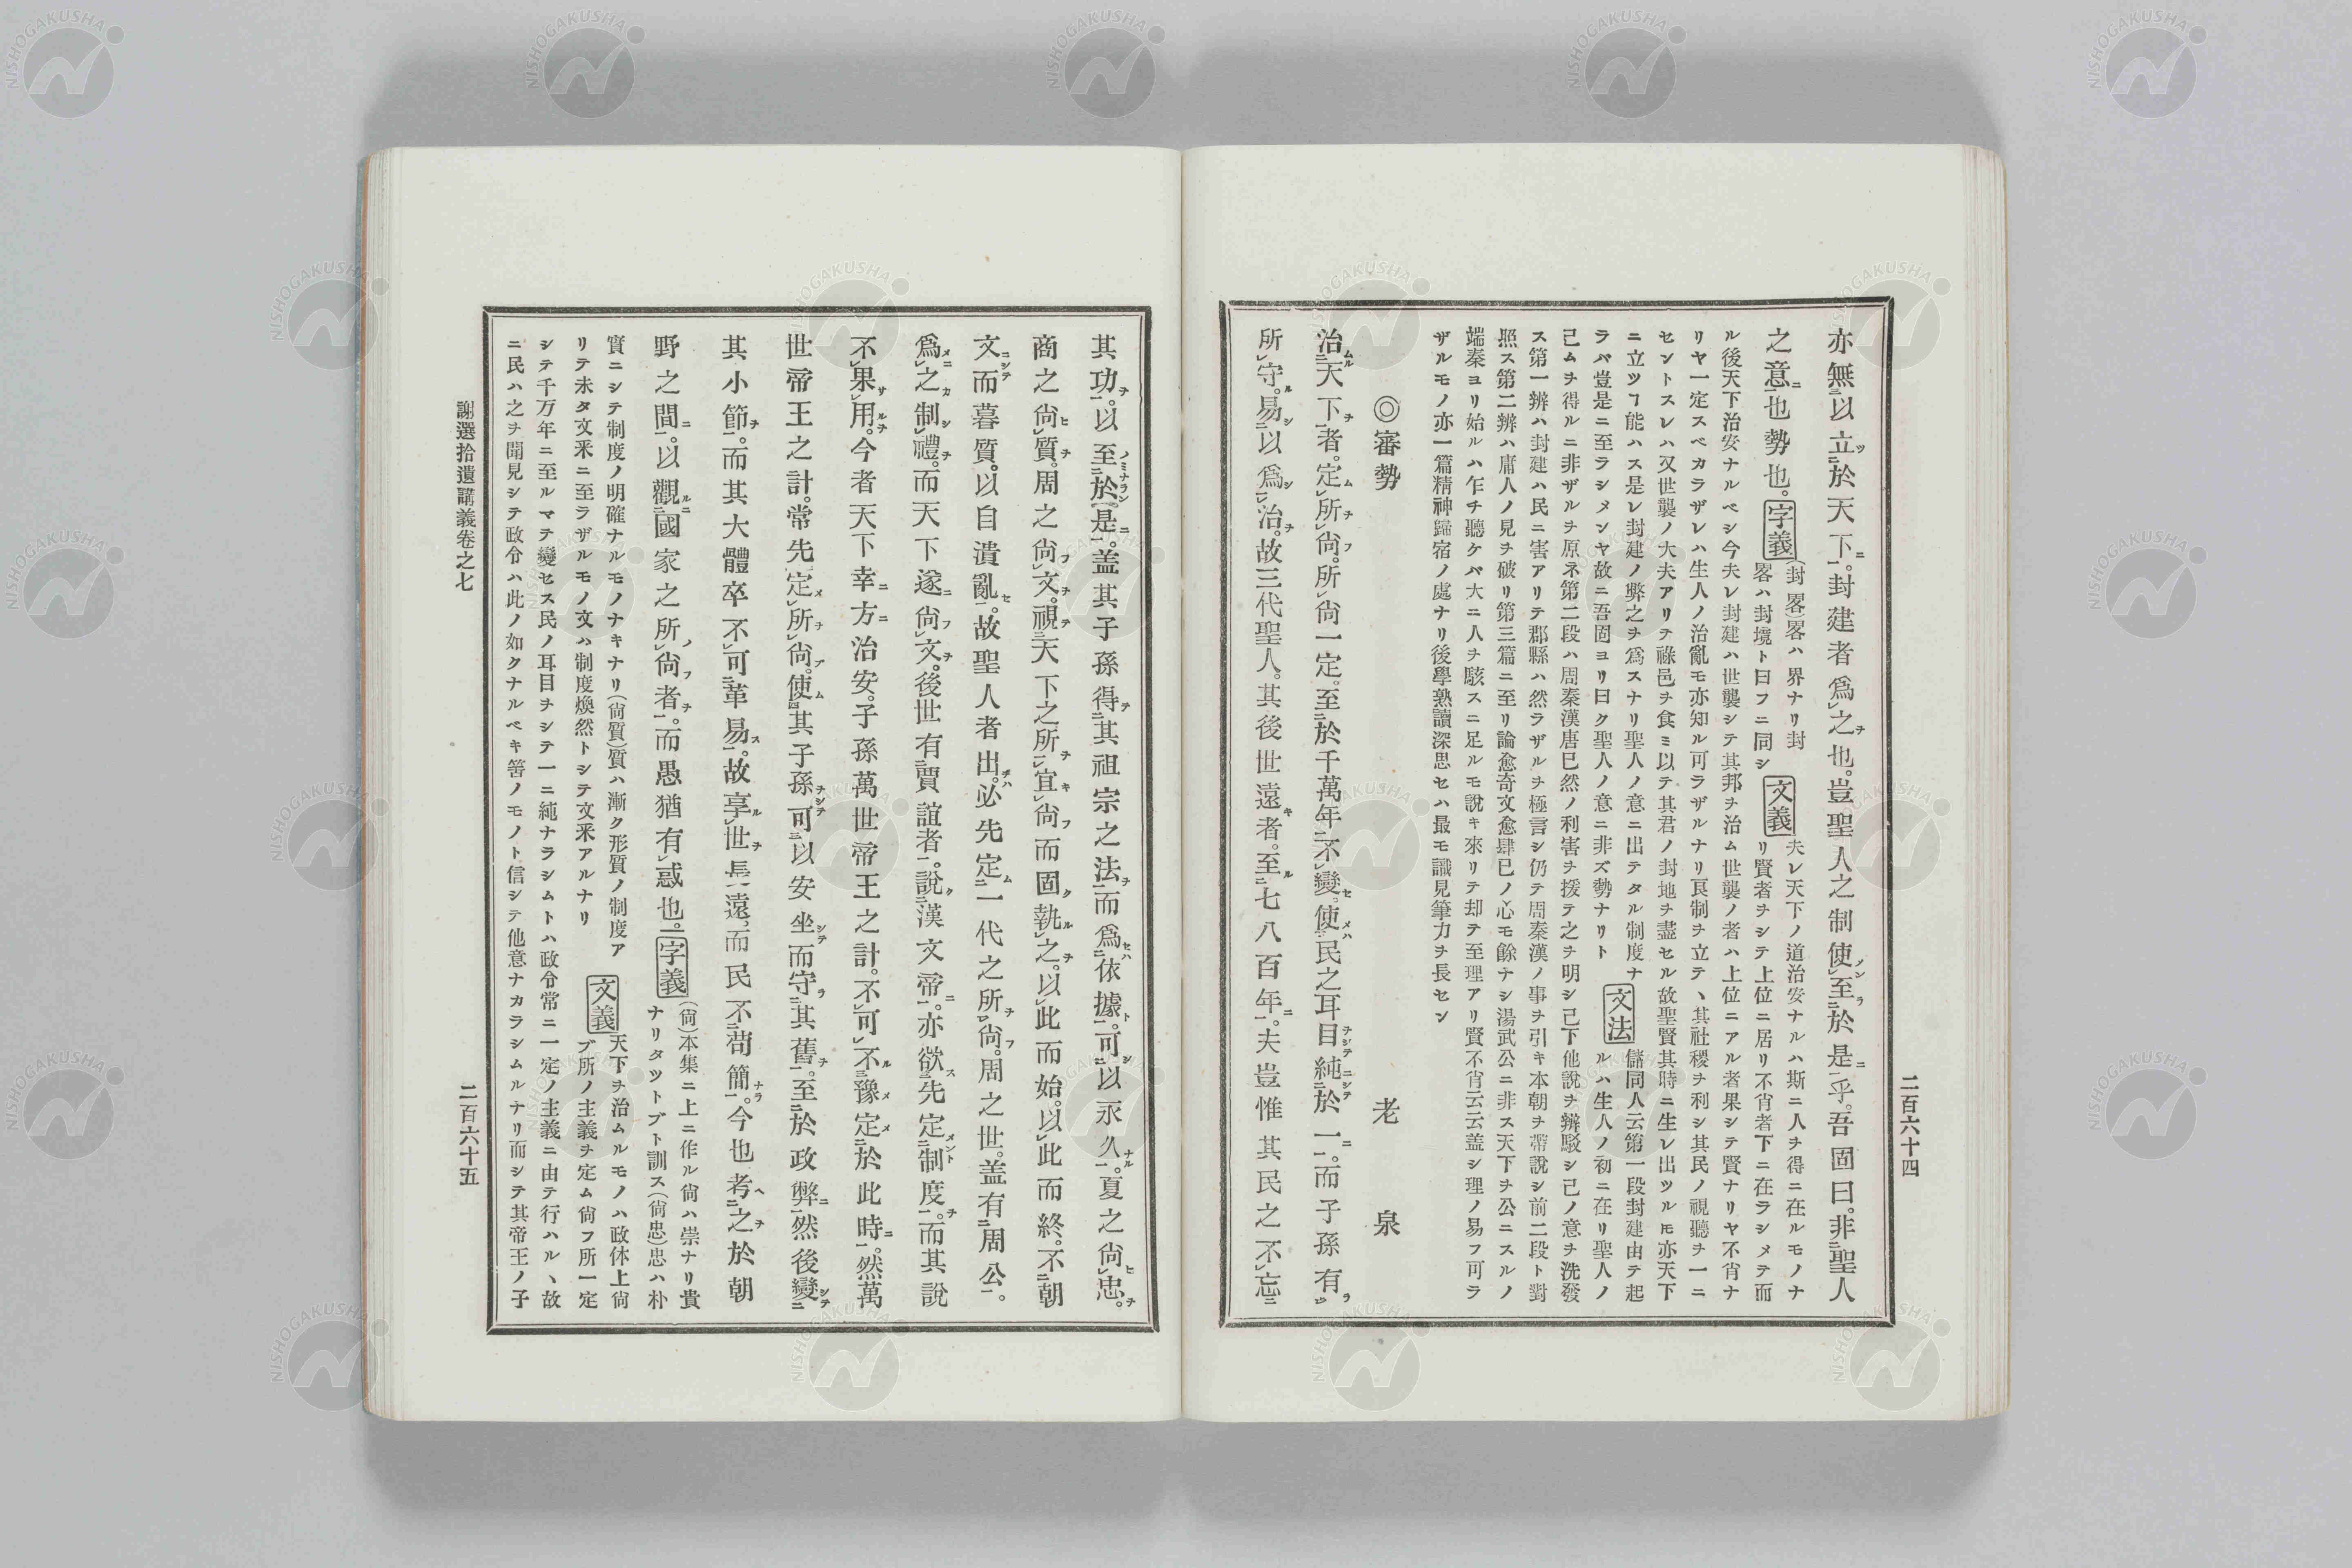 二百六十四
亦無以立於天下。封建者爲之也。豈聖人之制使至於是乎。吾固曰。非聖人
之意也勢也。
字義
(封畧畧ハ界ナリ封
畧ハ封境ト曰フニ同シ
文義
夫レ天下ノ道治安ナルハ斯ニ人ヲ得ニ在ルモノナ
リ賢者ヲシテ上位ニ居リ不肖者下ニ在ラシメテ而
ル後天下治安ナルベシ今夫レ封建ハ世襲シテ其邦ヲ治ム世襲ノ者ハ上位ニアル者果シテ賢ナリヤ不肖ナ
リヤ一定スベカラザレハ生人ノ治亂モ亦知ル可ラザルナリ良制ヲ立テ、其社稷ヲ利シ其民ノ視聽ヲ一ニ
セントスレハ又世襲ノ大夫アリテ祿邑ヲ食ミ以テ其君ノ封地ヲ盡セル故聖賢其時ニ生レ出ツルモ亦天下
ニ立ツヿ能ハス是レ封建ノ弊之ヲ爲スナリ聖人ノ意ニ出テタル制度ナ
ラバ豈是ニ至ラシメンヤ故ニ吾固ヨリ曰ク聖人ノ意ニ非ズ勢ナリト
文法
儲同人云第一段封建由テ起
ルハ生人ノ初ニ在リ聖人ノ
己ムヲ得ルニ非ザルヲ原ネ第二段ハ周秦漢唐巳然ノ利害ヲ援テ之ヲ明シ己下他說ヲ辨駁シ己ノ意ヲ洗發
ス第一辨ハ封建ハ民ニ害アリテ郡縣ハ然ラザルヲ極言シ仍テ周秦漢ノ事ヲ引キ本朝ヲ帶說シ前二段ト對
照ス第二辨ハ庸人ノ見ヲ破リ第三篇ニ至リ論愈奇文愈肆巳ノ心モ餘ナシ湯武公ニ非ス天下ヲ公ニスルノ
端秦ヨリ始ルハ乍チ聽ケバ大ニ人ヲ駭スニ足ルモ說キ來リテ却テ至理アリ賢不肖云云盖シ理ノ易フ可ラ
ザルモノ亦一篇精神歸宿ノ處ナリ後學熟讀深思セハ最モ識見筆力ヲ長セン
◎審勢　老泉
治天下者。定所尙。所尙一定。至於千萬年不變。使民之耳目純於一。而子孫有
所守。易以爲治。故三代聖人。其後世遠者。至七八百年。夫豈惟其民之不忘
其功。以至於是。盖其子孫得其祖宗之法而爲依據。可以永久。夏之尙忠。
商之尙質。周之尙文。視天下之所宜尙而固執之。以此而始。以此而終。不朝
文而暮質。以自潰亂。故聖人者出。必先定一代之所尙。周之世。盖有周公。
爲之制禮。而天下遂尙文。後世有賈誼者。說漢文帝。亦欲先定制度。而其說
不果用。今者天下幸方治安。子孫萬世帝王之計。不可不豫定於此時。然萬
世帝王之計。常先定所尙。使其子孫可以安坐而守其舊。至於政弊然後變
其小節。而其大體卒不可革易。故享世長遠。而民不苟簡。今也考之於朝
野之間。以觀國家之所尙者。而愚猶有惑也。
字義
(尙)本集ニ上ニ作ル尙ハ崇ナリ貴
ナリタツトブト訓ス(尙忠)忠ハ朴
實ニシテ制度ノ明確ナルモノナキナリ(尙質)質ハ漸ク形質ノ制度ア
リテ未タ文釆ニ至ラザルモノ文ハ制度煥然トシテ文釆アルナリ
文義
天下ヲ治ムルモノハ政体上尙
ブ所ノ主義ヲ定ム尙フ所一定
シテ千万年ニ至ルマテ變セス民ノ耳目ヲシテ一ニ純ナラシムトハ政令常ニ一定ノ主義ニ由テ行ハル、故
ニ民ハ之ヲ聞見シテ政令ハ此ノ如クナルベキ筈ノモノト信シテ他意ナカラシムルナリ而シテ其帝王ノ子
謝選拾遺講義卷之七
二百六十五